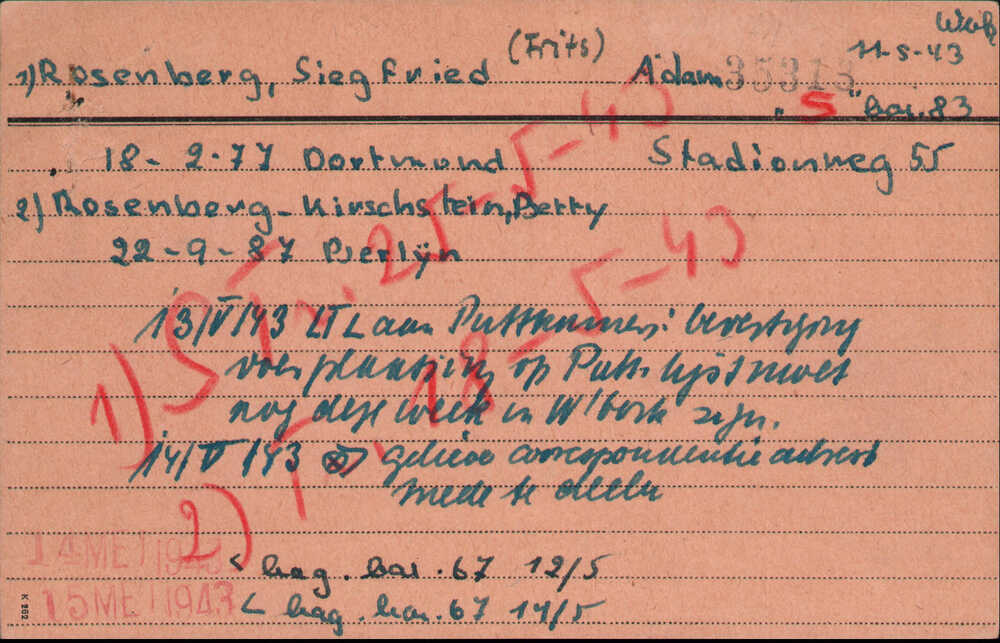 Weib
11-5-43
1) Rosenberg, Siegfried (Frits) Adam 35313
"S" bar. 83
18-2-77 Dortmund Stadionweg 55
2) Rosenberg-Kirschstein, Betty
22-9-87 Berlijn
1) ST. 25-5-43
13/V/43 LTL aan Puttkamer: bevestiging
voor plaatsing op Putt. lijst moet
nog deze week in W'bork zijn.
14/V/43 gelieve correspondentie adres
mede te delen
2) T. 18-5-43
14 MEI 1943
< bag. bar. 67 12/5
15 MEI 1943
< bag. bar. 67 14/5
K 292